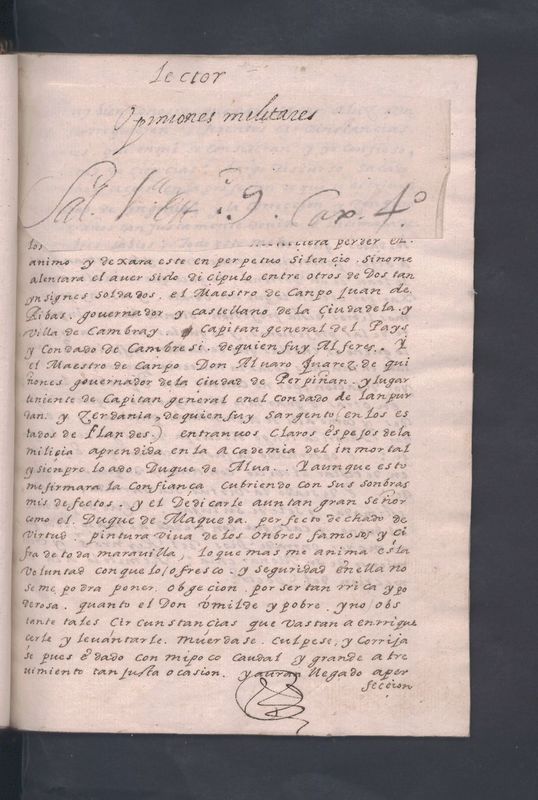 Lector
Opiniones militares
Sal. 1 Est. 9. Cax. 4º
los perder el
animo y dexara este en perpetuo Silençio. Sinome
alentara el aver sido diçipulo entre otros de Dos tan
ynsignes soldados. el Maestro de Canpo Juan de
Ribas. governador y castellano de la Ciudadela. y
Villa de Cambray y Capitan general del Pays
y Condado de Cambresi. dequien fuy Alferes. Y
el Maestro de Canpo Don Alvaro Juarez de qui
ñones governador de la Ciudad de Perpiñan. y lugar
teniente de Capitan general enel Condado de lanpur
dan. y Zerdania, de quien fuy Sargento (en los es
tados de Flandes.) entranvos Claros espejos de la
miliçia aprendida en la Academia del inmortal
y sienpre loado Duque de Alva.. Y aunque esto
me firmara la Confiança cubriendo con sus sonbras
mis defectos. y el Dedicarle a un tan gran Señor
como el. Duque de Maqueda. perfecto dechado de
virtud. pintura viva de los onbres famosos y çi
fra de toda maravilla, lo que mas me anima es la
voluntad con que lo ofresco. y seguridad en ella no
se me podra poner obgeçion. por ser tan rrica y po
derosa. quanto el Don vmilde y pobre. y no obs
tante tales Circunstancias que vastan a enrrique
cerle y levantarle. muerdase. culpese, y Corrija
se pues e dado con mi poco caudal y grande atre
vimiento tan justa ocasion. y avran llegado a per
fecçion